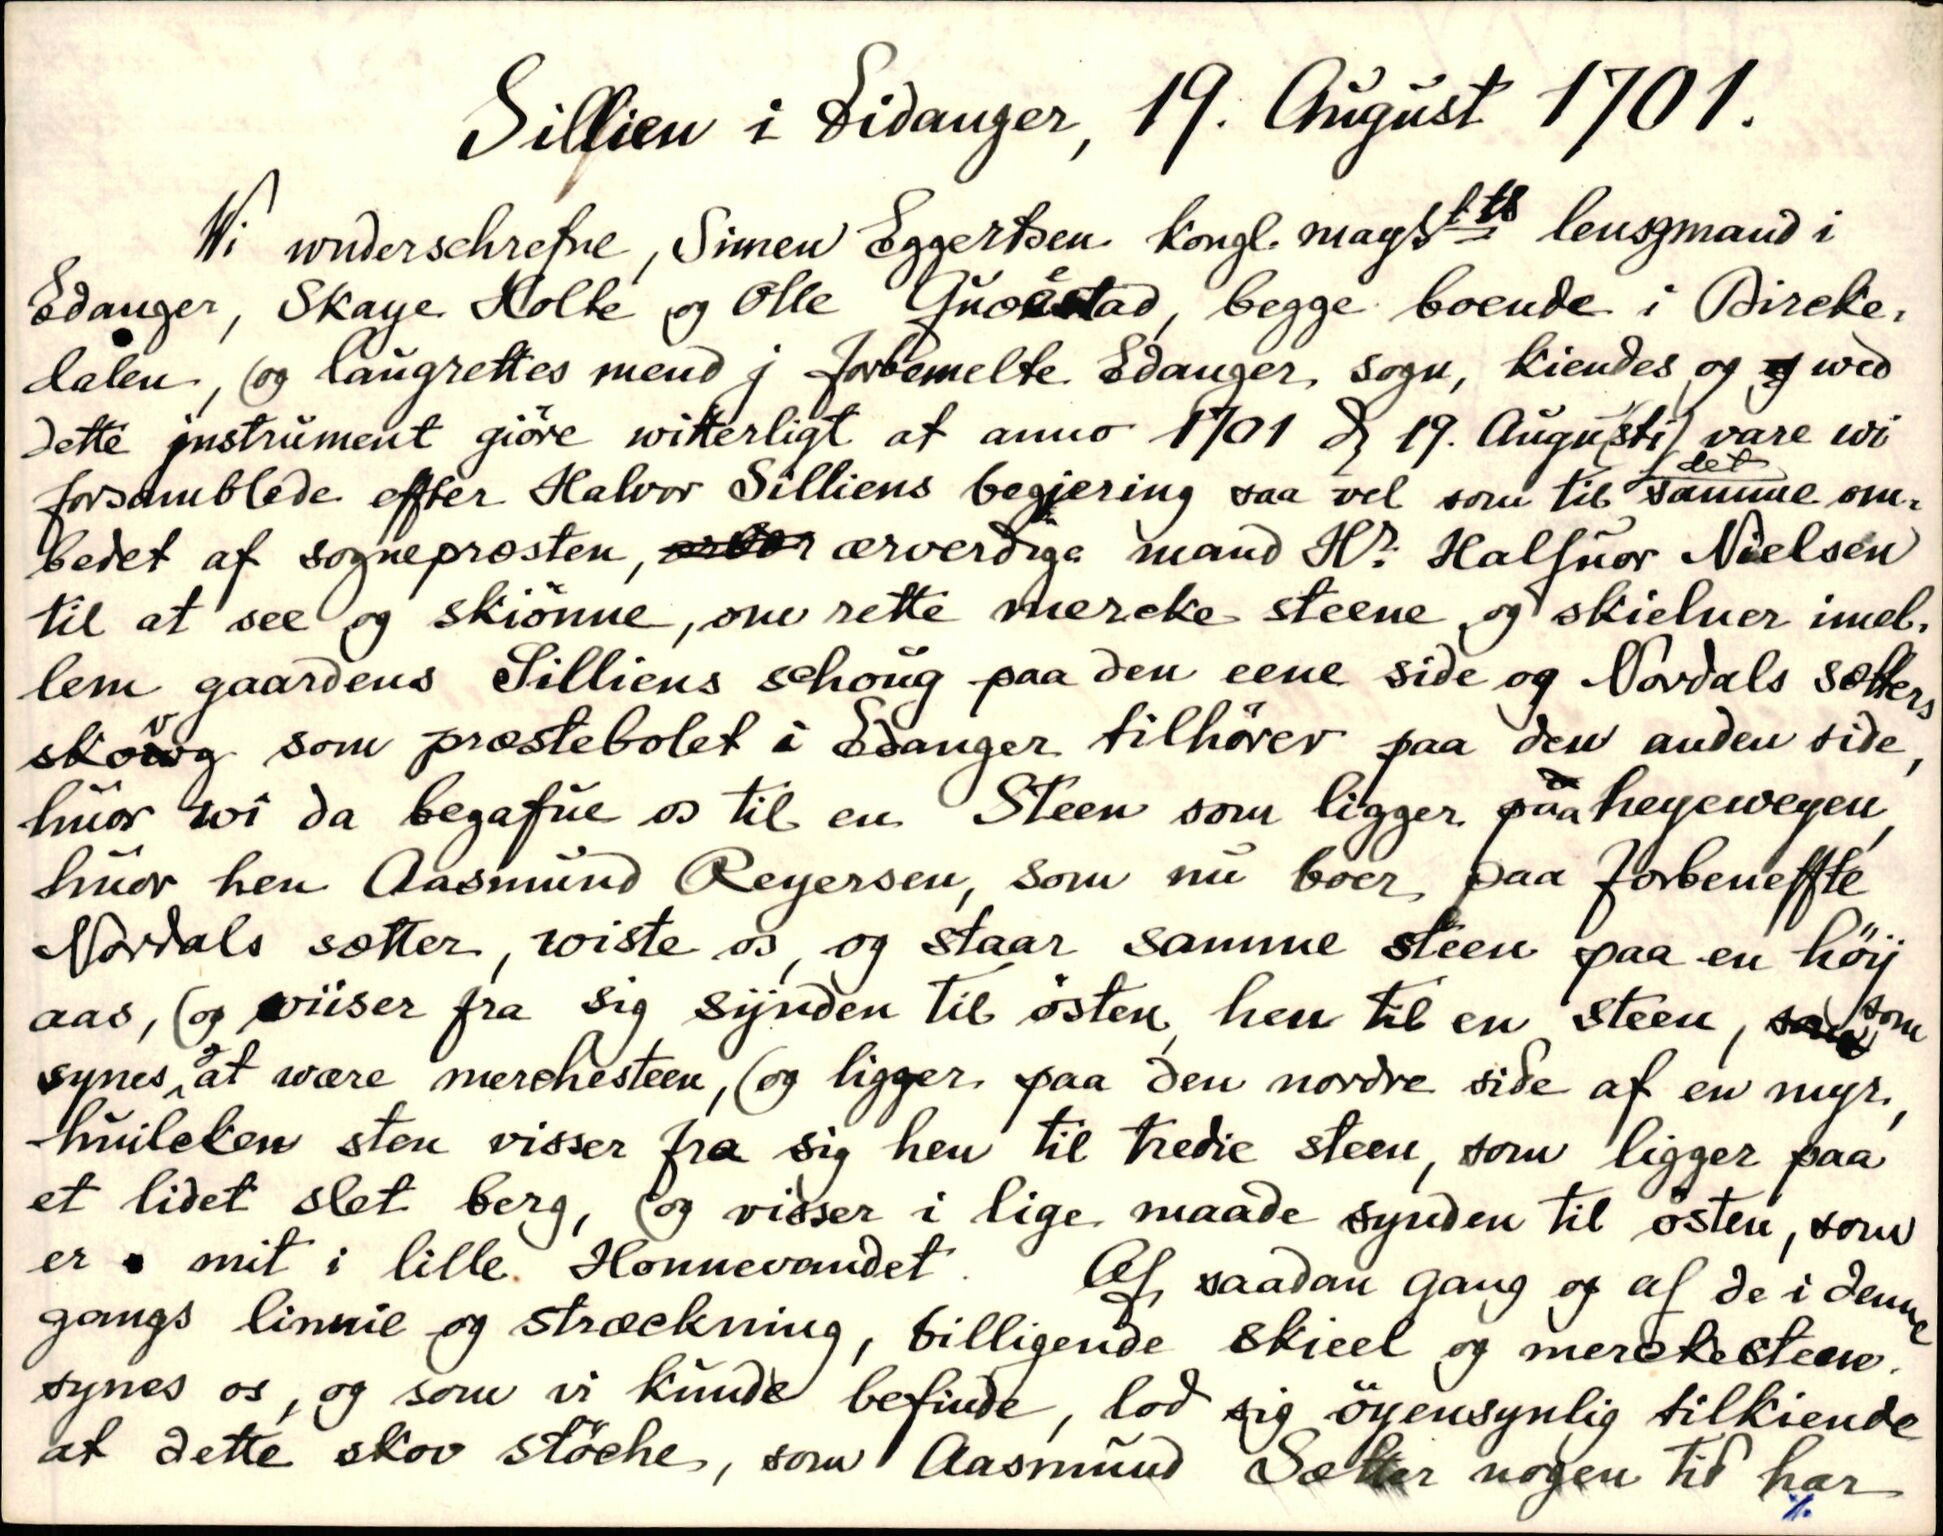 Sillien i Eidanger, 19. August 1701.
Wi wnderschrefne, Simen Eggertsen kongl. mayst ts lensgmand i
Edanger, Skaye Holte og Olle Gnoestad, begge boende i Bircke,
dalen, (og laugrettes mend j forbemelte Edanger sogn, kiendes og wed
dette jnstrument giöre witterligt at anno 1701 d 19. Augu(sti) vare wi
forsamblede effter Halvor Silliens begjering saa vel som til det samme om,
bedet af sogneprosten, ærverdige mand Hr. Halfuor Nielsen
til at see og skiönne, om rette mercke steene og skielner imel,
lem gaardens Silliens schoug paa den eene side og Nordals sætters
skovg som præstebolet i Edanger tilhörer paa den anden side,
huor wi da begafue os til en Steen som ligger paa heyeweyen,
huor hen Aasmund Reyersen, som nu boer paa forbeneffte
Nordals sætter, wiste os, og staar samme steen paa en höij
aas, (og wiiser fra sig sijnden til östen, hen til en steen, som
synes at wære merchesteen, (og ligger paa den nordre side af en myr,
huilcken sten visser fra sig hen til tredie steen, som ligger paa
et lidet slet berg, (og visser i lige maade synden til östen, som
er mit i lille Honnevandet. Af saadan gang og af de i denne
gangs linnie og stræckning, billigende skieel og merckesteen.
synes os, og som vi kunde befinde, lod sig öyensynlig tilkiende
at dette skov stöche, som Aasmund Sætter nogen tid har
%